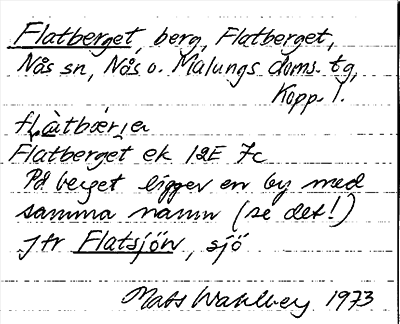 Flatberget, berg, Flatberget,
Nås sn, Nås o. Malungs doms. tg,
Kopp. l.
Flatberget ek 12E 7c
På berget ligger en by med
samma namn (se det!)
jfr Flatsjön, sjö
Mats Wahlberg 1973